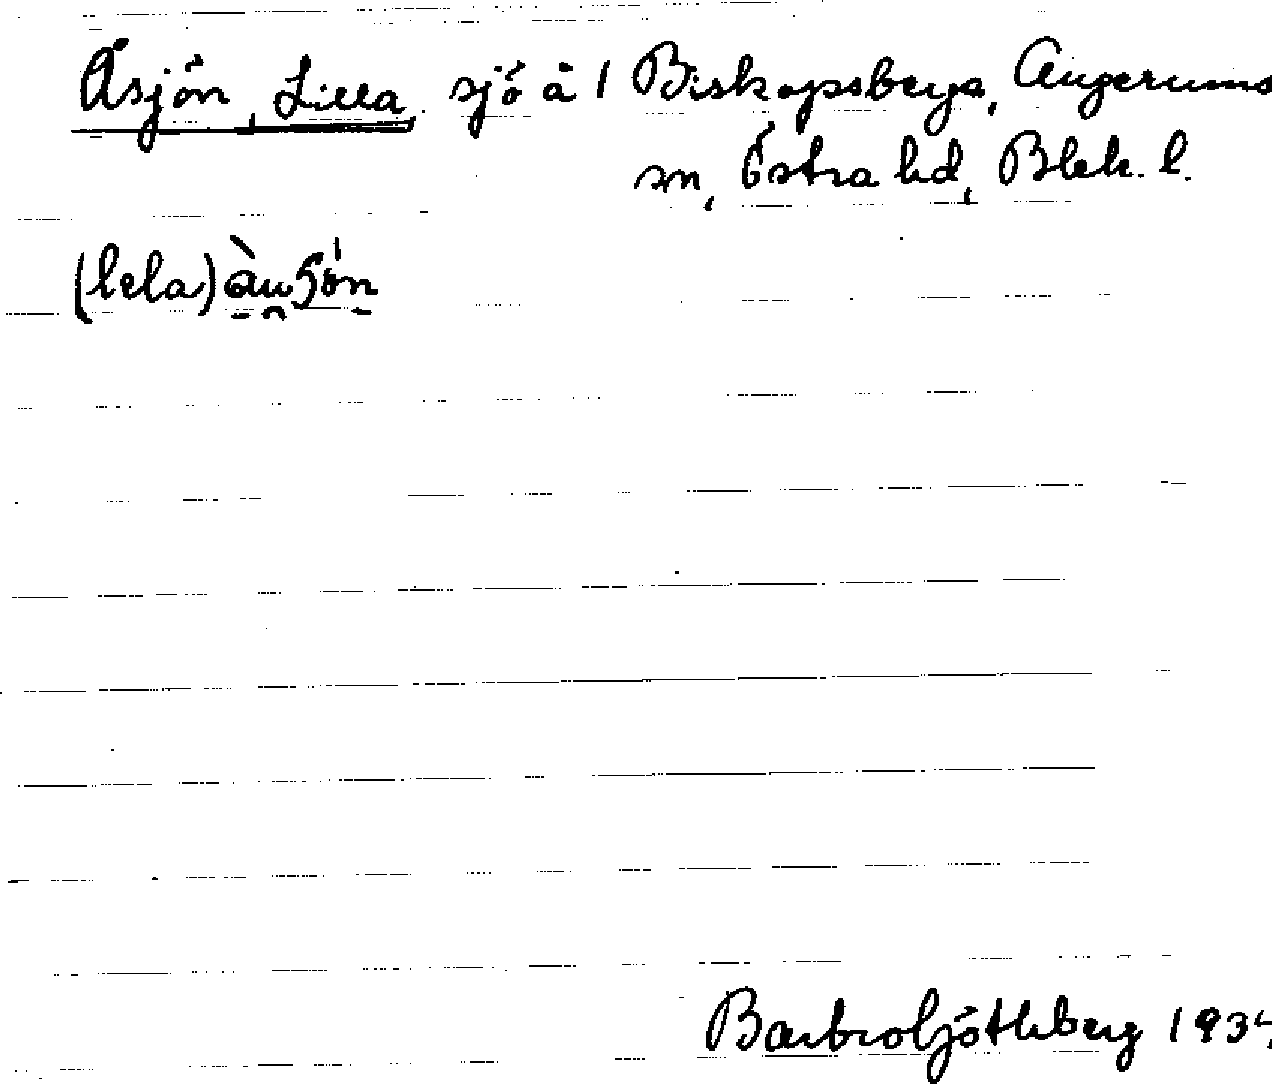 Åsjön, Lilla. sjö å 1 Biskopsberga, Augerums
sn, Östra hd, Blek. l.
(lela)
Barbro Götheberg 193